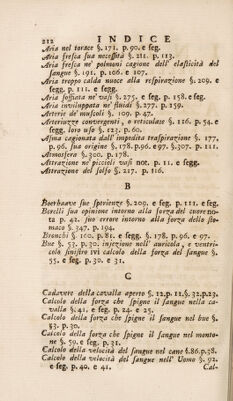 212 INDICE
Aria nel torace §. 171. p. 90. e seg.
Aria fresca sua necessità §. 211. p. 113.
Aria fresca ne' polmoni cagione dell' elasticità del
sangue §. 191. p. 106. e 107.
Aria troppo calda nuoce alla respirazione §. 209. e
segg. p. 111. e segg.
Aria soffiata ne' vasi §. 275. e seg. p. 158. e seg.
Aria inviluppata ne' fluidi §. 277. p. 159.
Arterie de' muscoli §. 109. p. 47.
Arteriuzze convergenti, e reticolate §. 126. p. 54. e
segg. loro uso §. 123. p. 60.
Asma cagionata dall' impedita traspirazione §. 177.
p. 96. sua origine §. 178. p. 96. e 97. §. 307. p. 111.
Atmosfera §. 300. p. 178.
Attrazione ne' piccoli vasi not. p. 11. e segg.
Attrazione del solfo §. 217. p. 116.
B
Boerhaave sue sperienze §. 209. e seg. p. 111. e seg.
Borelli sua opinione intorno alla forza del cuore no-
ta p. 42. suo errore intorno alla forza dello sto-
maco §. 347. p. 194.
Bronchi §. 160. p. 81. e segg. §. 178. p. 96. e 97.
Bue §. 53. p. 30. injezione nell' auricola, e ventri-
colo sinistro ivi calcolo della forza del sangue §.
55. e seg. p. 30. e 31.
C
Cadavere della cavalla aperto §. 12. p. 11. §. 32. p. 23.
Calcolo della forza che spigne il sangue nella ca-
valla §. 41. e seg. p. 24. e 25.
Calcolo della forza che spigne il sangue nel bue §.
53. p. 30.
Calcolo della forza che spigne il sangue nel monto-
ne §. 59. e seg. p. 31.
Calcolo della velocità del sangue nel cane §. 86. p. 38.
Calcolo della velocità del sangue nell' Uomo §. 92.
e seg. p. 40. e 41.
Cal-